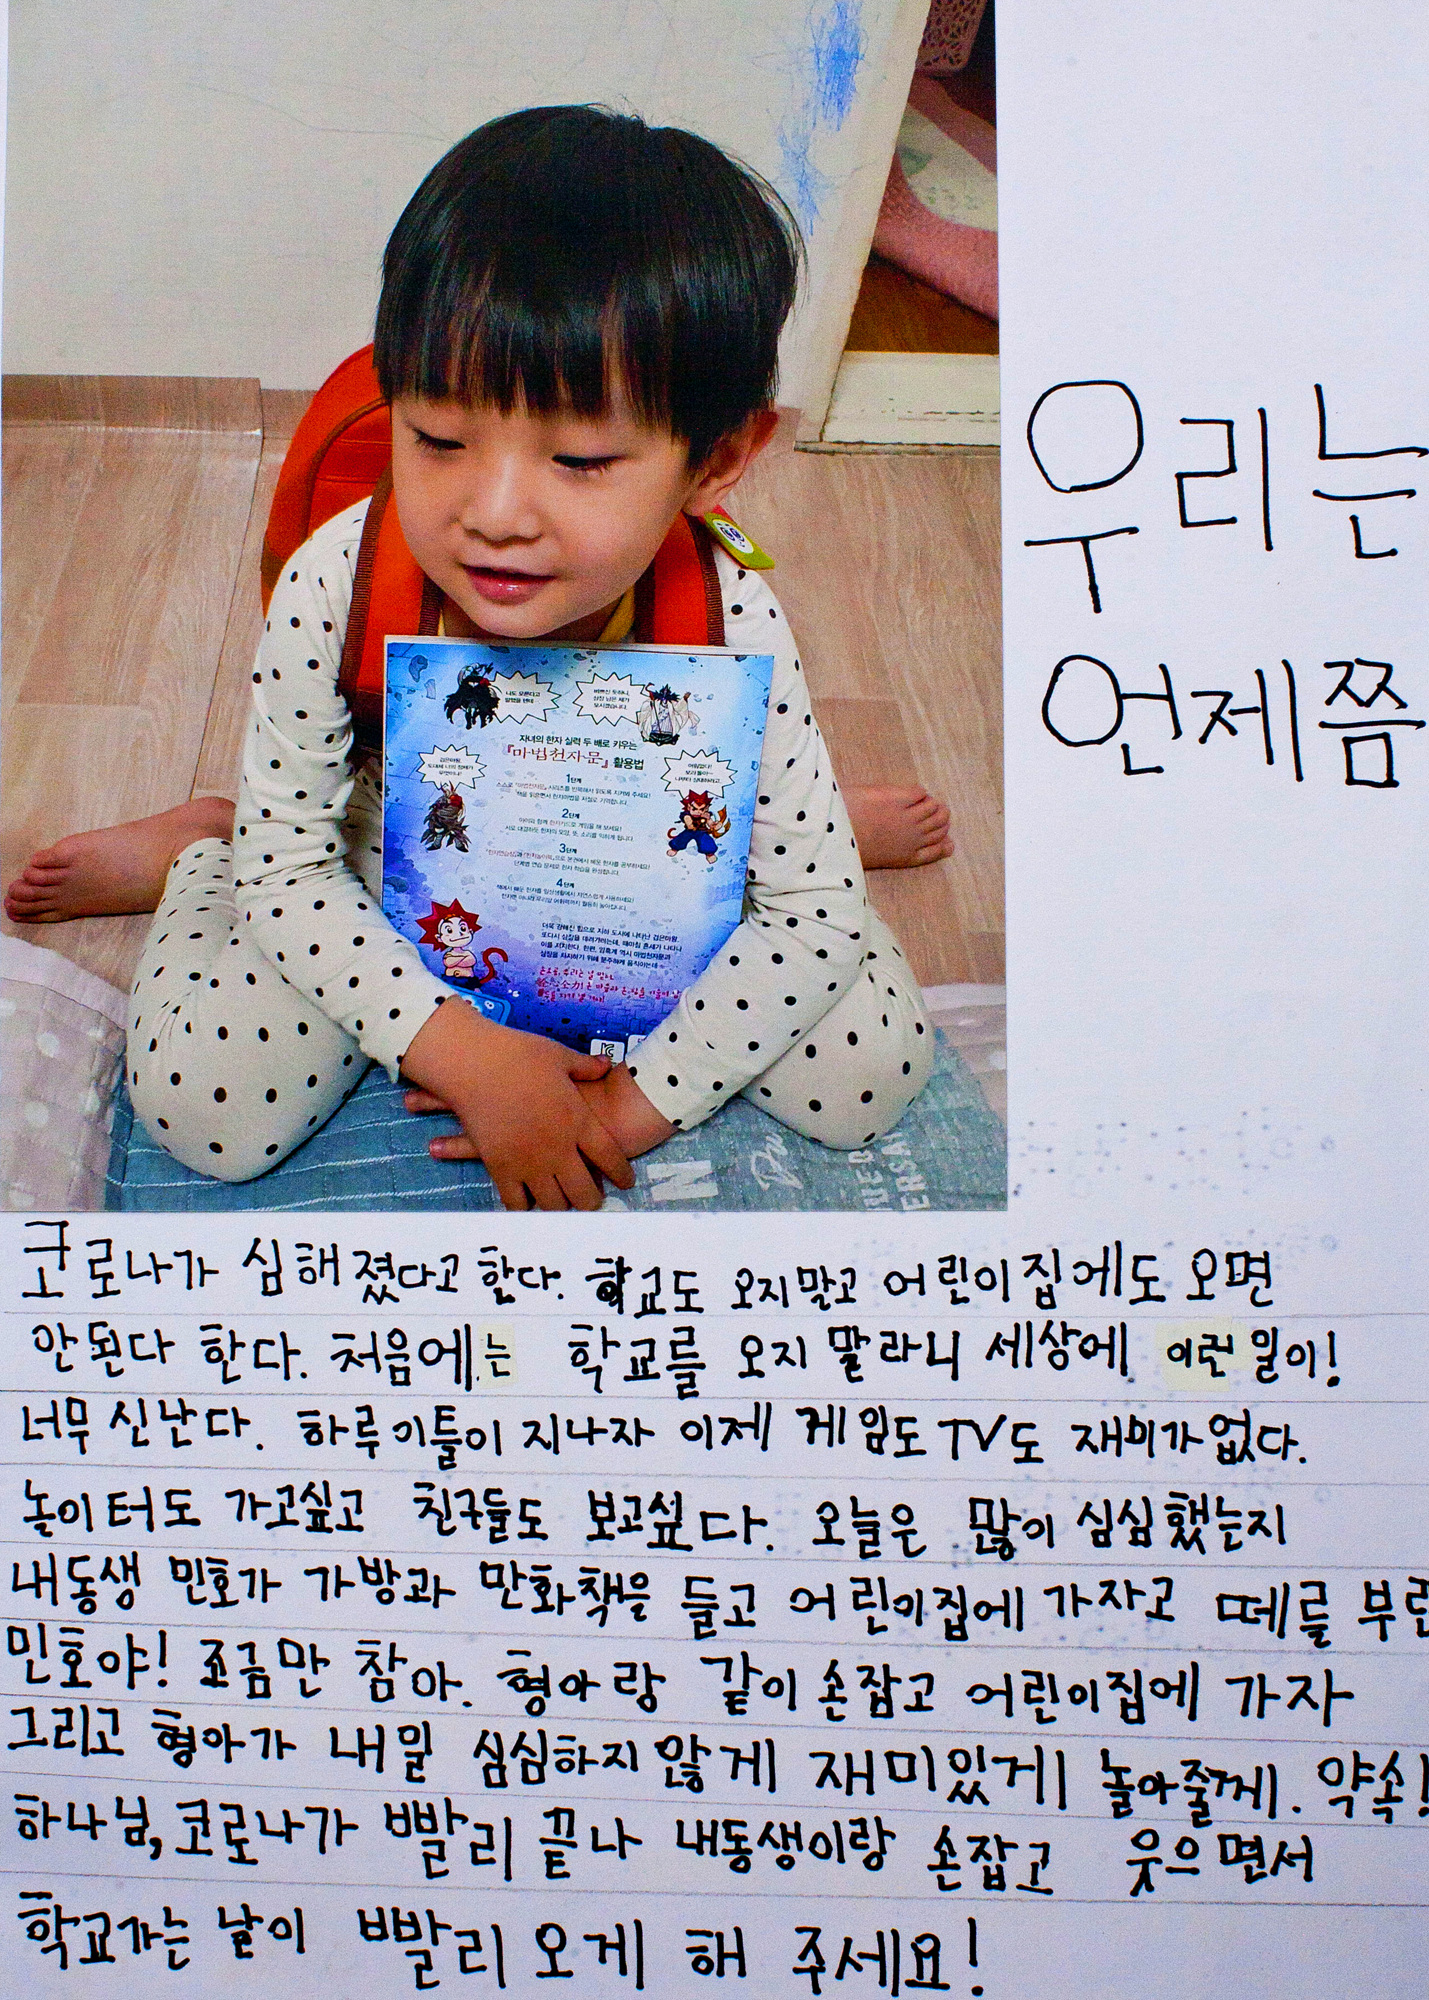 우리는
언제쯤
나도 모른다고
말했을 텐데…
자녀의 한자 실력 두 배로 키우는
『마법천자문』 활용법
1단계
2단계
3단계
4단계
코로나가 심해졌다고 한다. 학교도 오지말고 어린이집에도 오면
안된다 한다. 처음에는 학교를 오지 말라니 세상에 이런 일이!
너무 신난다. 하루이틀이 지나자 이제 게임도 TV도 재미가없다.
놀이터도 가고싶고 친구들도 보고싶다. 오늘은 많이 심심했는지
내동생 민호가 가방과 만화책을 들고 어린이집에 가자고 떼를 부린
민호야! 조금만 참아. 형아랑 같이 손잡고 어린이집에 가자
그리고 형아가 내일 심심하지않게 재미있게 놀아줄께. 약속!
하나님, 코로나가 빨리 끝나 내동생이랑 손잡고 웃으면서
학교가는 날이 빨리 오게 해 주세요!